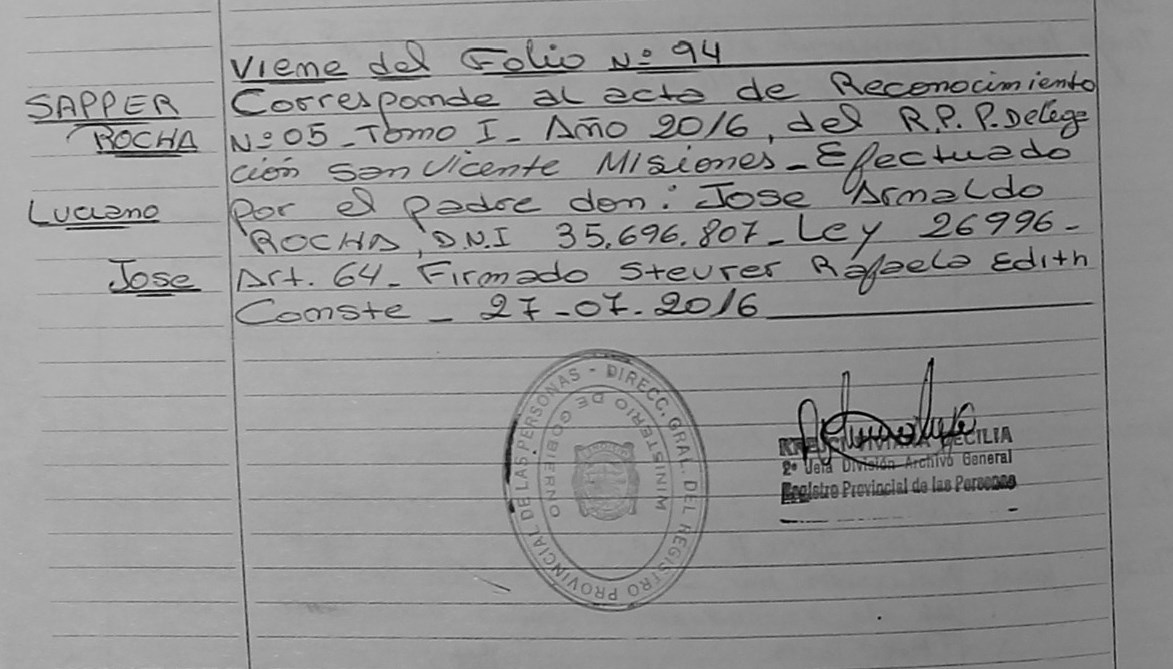 Viene del Folio Nº 94
SAPPER
ROCHA
Luciano
Jose
Corresponde al acta de Reconocimiento
Nº 05 - Tomo I - Año 2016, del R.P.P. Delega
ción San Vicente Misiones - Efectuado
por el padre don: Jose Arnaldo
ROCHA, D.N.I 35.696.807 - Ley 26996 -
Art. 64 - Firmado Steurer Rafaela Edith
Conste - 27-07-2016
DIRECC. GRAL. DEL REGISTRO PROVINCIAL DE LAS PERSONAS -
MINISTERIO DE GOBIERNO
CECILIA
2º Jefa División Archivo General
Registro Provincial de las Personas